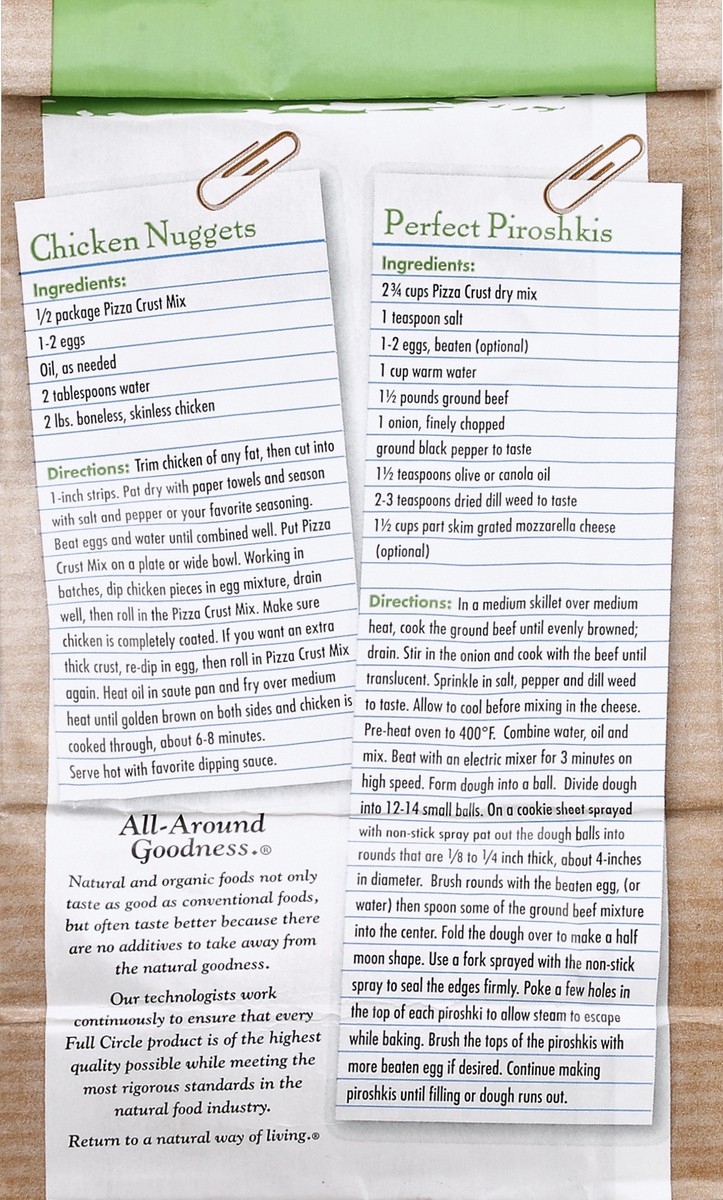 Chicken Nuggets
Ingredients:
1/2 package Pizza Crust Mix
1-2 eggs
Oil, as needed
2 tablespoons water
2 lbs. boneless, skinless chicken
Directions: Trim chicken of any fat, then cut into
1-inch strips. Pat dry with paper towels and season
with salt and pepper or your favorite seasoning.
Beat eggs and water until combined well. Put Pizza
Crust Mix on a plate or wide bowl. Working in
batches, dip chicken pieces in egg mixture, drain
well, then roll in the Pizza Crust Mix. Make sure
chicken is completely coated. If you want an extra
thick crust, re-dip in egg, then roll in Pizza Crust Mix
again. Heat oil in saute pan and fry over medium
heat until golden brown on both sides and chicken is
cooked through, about 6-8 minutes.
Serve hot with favorite dipping sauce.
All-Around
Goodness.®
Natural and organic foods not only
taste as good as conventional foods,
but often taste better because there
are no additives to take away from
the natural goodness.
Our technologists work
continuously to ensure that every
Full Circle product is of the highest
quality possible while meeting the
most rigorous standards in the
natural food industry.
Return to a natural way of living.®
Perfect Piroshkis
Ingredients:
2¾ cups Pizza Crust dry mix
1 teaspoon salt
1-2 eggs, beaten (optional)
1 cup warm water
1½ pounds ground beef
1 onion, finely chopped
ground black pepper to taste
1½ teaspoons olive or canola oil
2-3 teaspoons dried dill weed to taste
1½ cups part skim grated mozzarella cheese
(optional)
Directions: In a medium skillet over medium
heat, cook the ground beef until evenly browned;
drain. Stir in the onion and cook with the beef until
translucent. Sprinkle in salt, pepper and dill weed
to taste. Allow to cool before mixing in the cheese.
Pre-heat oven to 400°F. Combine water, oil and
mix. Beat with an electric mixer for 3 minutes on
high speed. Form dough into a ball. Divide dough
into 12-14 small balls. On a cookie sheet sprayed
with non-stick spray pat out the dough balls into
rounds that are 1/8 to 1/4 inch thick, about 4-inches
in diameter. Brush rounds with the beaten egg, (or
water) then spoon some of the ground beef mixture
into the center. Fold the dough over to make a half
moon shape. Use a fork sprayed with the non-stick
spray to seal the edges firmly. Poke a few holes in
the top of each piroshki to allow steam to escape
while baking. Brush the tops of the piroshkis with
more beaten egg if desired. Continue making
piroshkis until filling or dough runs out.